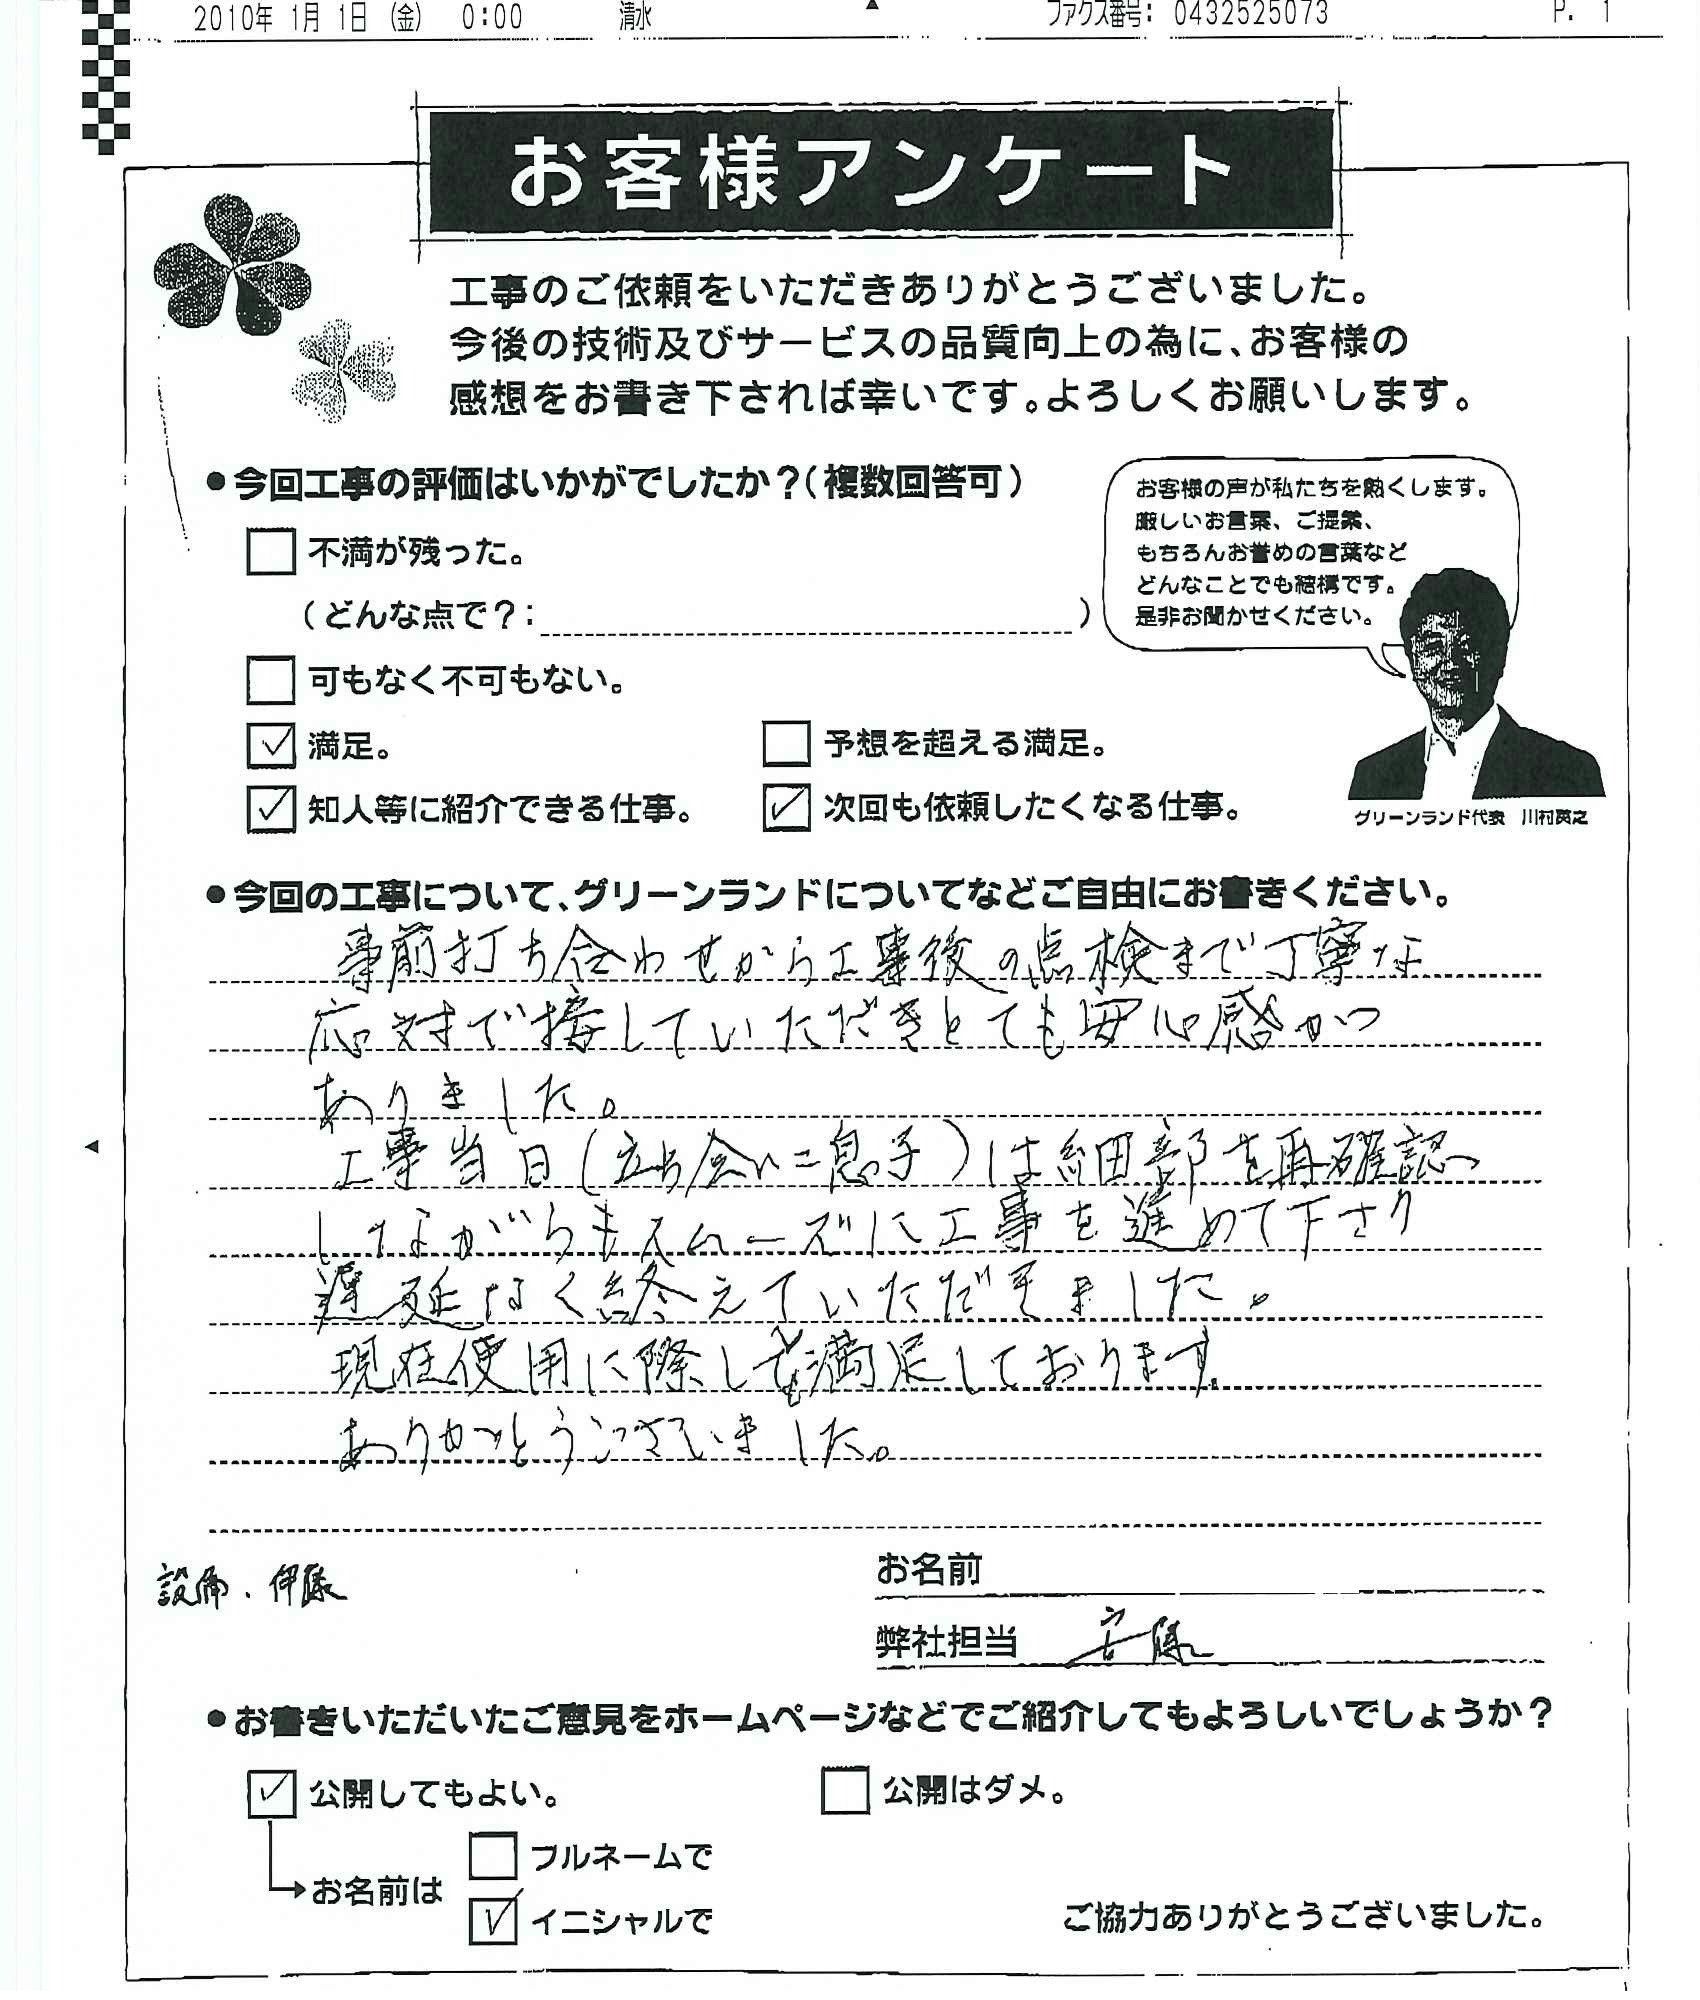 2010年 1月 1日(金) 0:00 清水 ファクス番号: 0432525073 P. 1
お客様アンケート
工事のご依頼をいただきありがとうございました。
今後の技術及びサービスの品質向上の為に、お客様の
感想をお書き下されば幸いです。よろしくお願いします。
●今回工事の評価はいかがでしたか?(複数回答可)
お客様の声が私たちを熱くします。
厳しいお言葉、ご提案、
もちろんお誉めの言葉など
どんなことでも結構です。
是非お聞かせください。
不満が残った。
(どんな点で?: )
可もなく不可もない。
✓ 満足。 予想を超える満足。
✓ 知人等に紹介できる仕事。 ✓ 次回も依頼したくなる仕事。
グリーンランド代表 川村英之
●今回の工事について、グリーンランドについてなどご自由にお書きください。
事前打ち合わせから工事後の点検まで丁寧な
応対で接していただきとても安心感がつ
ありました。
工事当日(立ち会いに息子)は細部を再確認
しながらもスムーズに工事を進めて下さり
遅延なく終えていただきました。
現在使用に際しても満足しております。
ありがとうございました。
設備・伊藤
お名前
弊社担当 安藤
●お書きいただいたご意見をホームページなどでご紹介してもよろしいでしょうか?
✓ 公開してもよい。 公開はダメ。
お名前は
フルネームで
✓ イニシャルで
ご協力ありがとうございました。